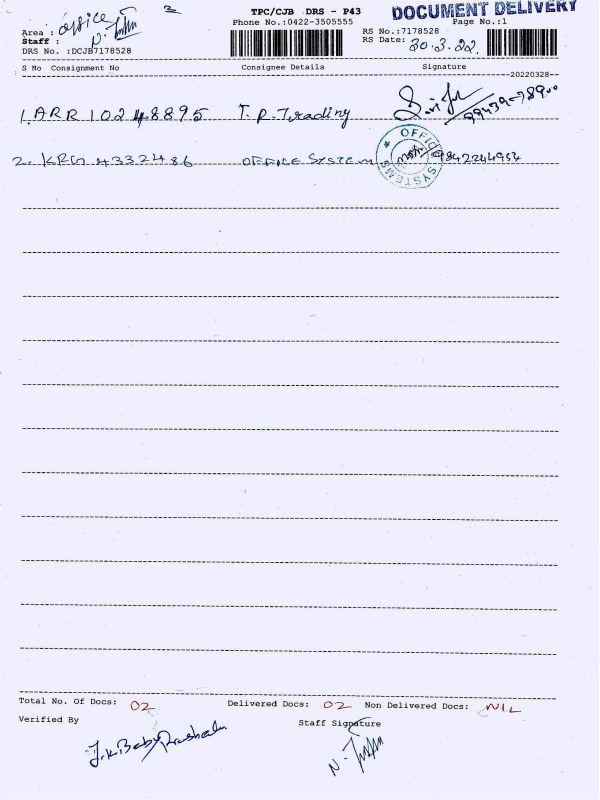 TPC/CJB DRS - P43
DOCUMENT DELIVERY
Phone No.:0422-3505555
Page No.:1
Area : office
RS No.:7178528
Staff :
RS Date: 30.3.22.
DRS No. :DCJB7178528
S No Consignment No Consignee Details Signature
20220328
1. ARR 10248895 T. P. Trading
99439-78900
2. KRG 4332486 OFFICE SYSTEM 9842244954
OFFICE SYSTEMS
Total No. Of Docs: 02 Delivered Docs: 02 Non Delivered Docs: NIL
Verified By Staff Signature